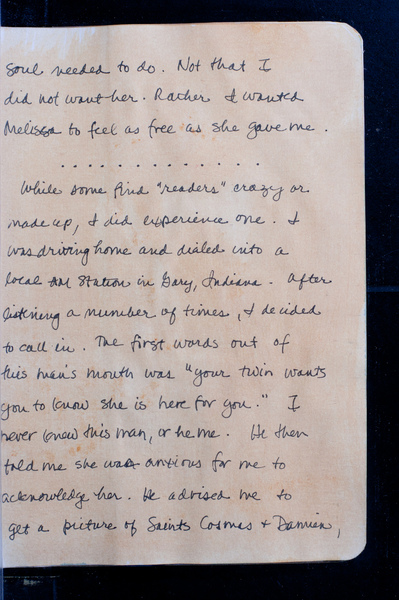 soul needed to do. Not that I
did not want her. Rather I wanted
Melissa to feel as free as she gave me.
. . . . . . . . . . . . . .
While some find "readers" crazy or
made up, I did experience one. I
was driving home and dialed into a
local AM Station in Gary, Indiana. After
listening a number of times, I decided
to call in. The first words out of
this man's mouth was "your twin wants
you to know she is here for you." I
never knew this man, or he me. He then
told me she was anxious for me to
acknowledge her. He advised me to
get a picture of Saints Cosmas + Damien,